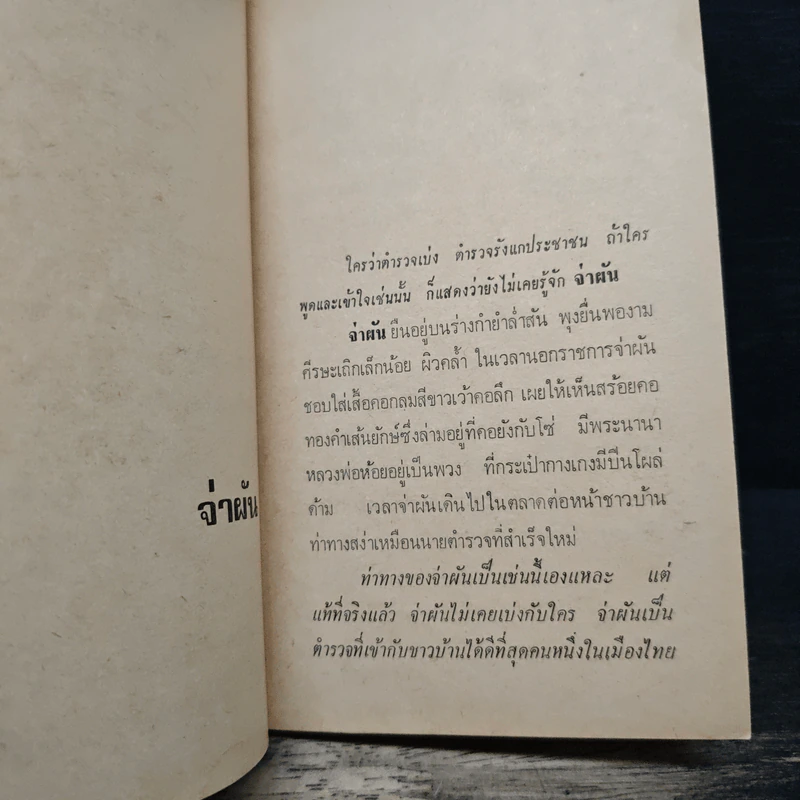 จ่าผัน
ใครว่าตำรวจเบ่ง ตำรวจรังแกประชาชน ถ้าใคร
พูดและเข้าใจเช่นนั้น ก็แสดงว่ายังไม่เคยรู้จัก จ่าผัน
จ่าผัน ยืนอยู่บนร่างกำยำล่ำสัน พุงยื่นพองาม
ศีรษะเถิกเล็กน้อย ผิวคล้ำ ในเวลานอกราชการจ่าผัน
ชอบใส่เสื้อคอกลมสีขาวเว้าคอลึก เผยให้เห็นสร้อยคอ
ทองคำเส้นยักษ์ซึ่งล่ามอยู่ที่คอยังกับโซ่ มีพระนานา
หลวงพ่อห้อยอยู่เป็นพวง ที่กระเป๋ากางเกงมีปืนโผล่
ด้าม เวลาจ่าผันเดินไปในตลาดต่อหน้าชาวบ้าน
ท่าทางสง่าเหมือนนายตำรวจที่สำเร็จใหม่
ท่าทางของจ่าผันเป็นเช่นนี้เองแหละ แต่
แท้ที่จริงแล้ว จ่าผันไม่เคยเบ่งกับใคร จ่าผันเป็น
ตำรวจที่เข้ากับชาวบ้านได้ดีที่สุดคนหนึ่งในเมืองไทย